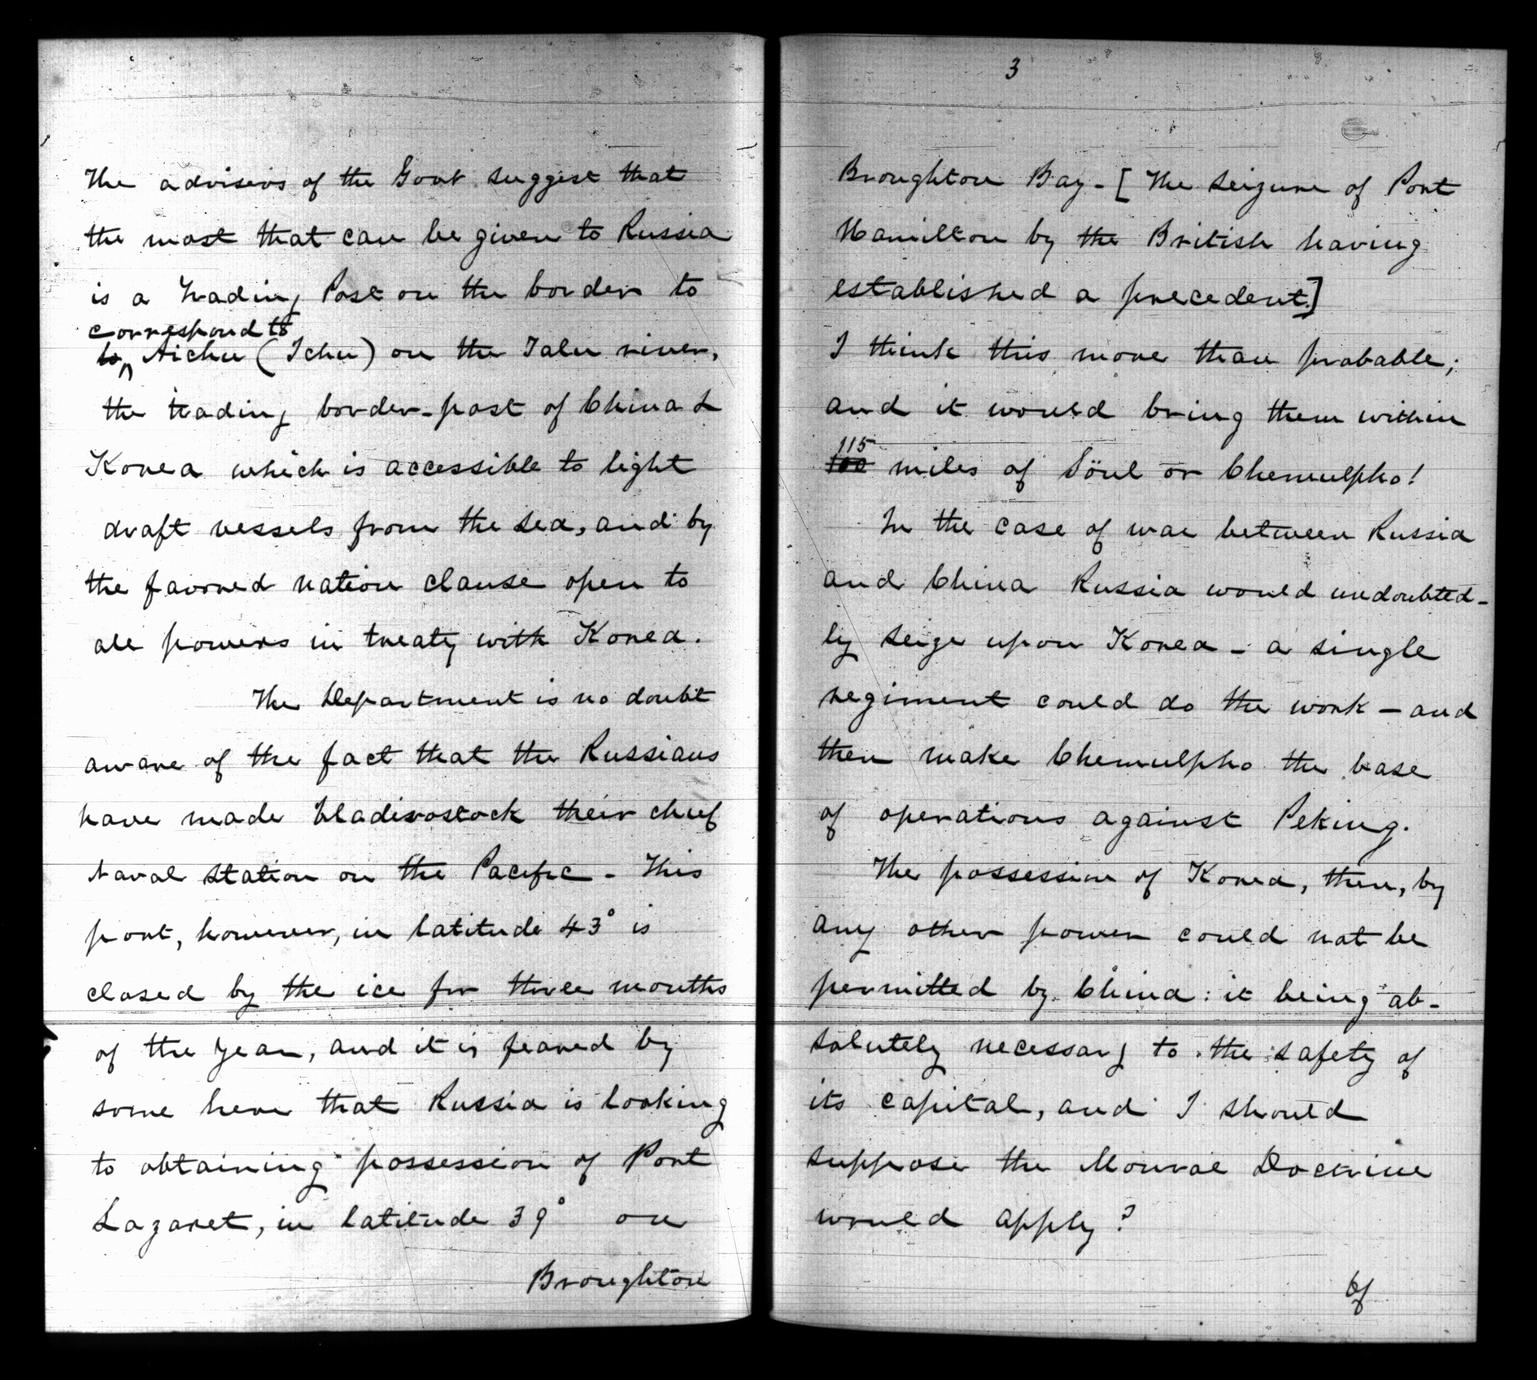 The advisers of the Govt suggest that
the most that can be given to Russia
is a trading Post on the border to
correspond to
to Aichu (Ichu) on the Yalu river,
the trading border-post of China &
Korea which is accessible to light
draft vessels from the sea, and by
the favored nation clause open to
all powers in treaty with Korea.
The Department is no doubt
aware of the fact that the Russians
have made Vladivostock their chief
Naval station on the Pacific - This
port, however, in latitude 43° is
closed by the ice for three months
of the year, and it is feared by
some here that Russia is looking
to obtaining possession of Port
Lazaret, in latitude 39° on
Broughton
3
Broughton Bay - [The seizure of Port
Hamilton by the British having
established a precedent.]
I think this more than probable;
and it would bring them within
115
100 miles of Söul or Chemulpho!
In the case of war between Russia
and China Russia would undoubted-
ly seize upon Korea - a single
regiment could do the work - and
then make Chemulpho the base
of operations against Peking.
The possession of Korea, then, by
any other power could not be
permitted by China: it being ab-
solutely necessary to the safety of
its capital, and I should
suppose the Monroe Doctrine
would apply?
Of